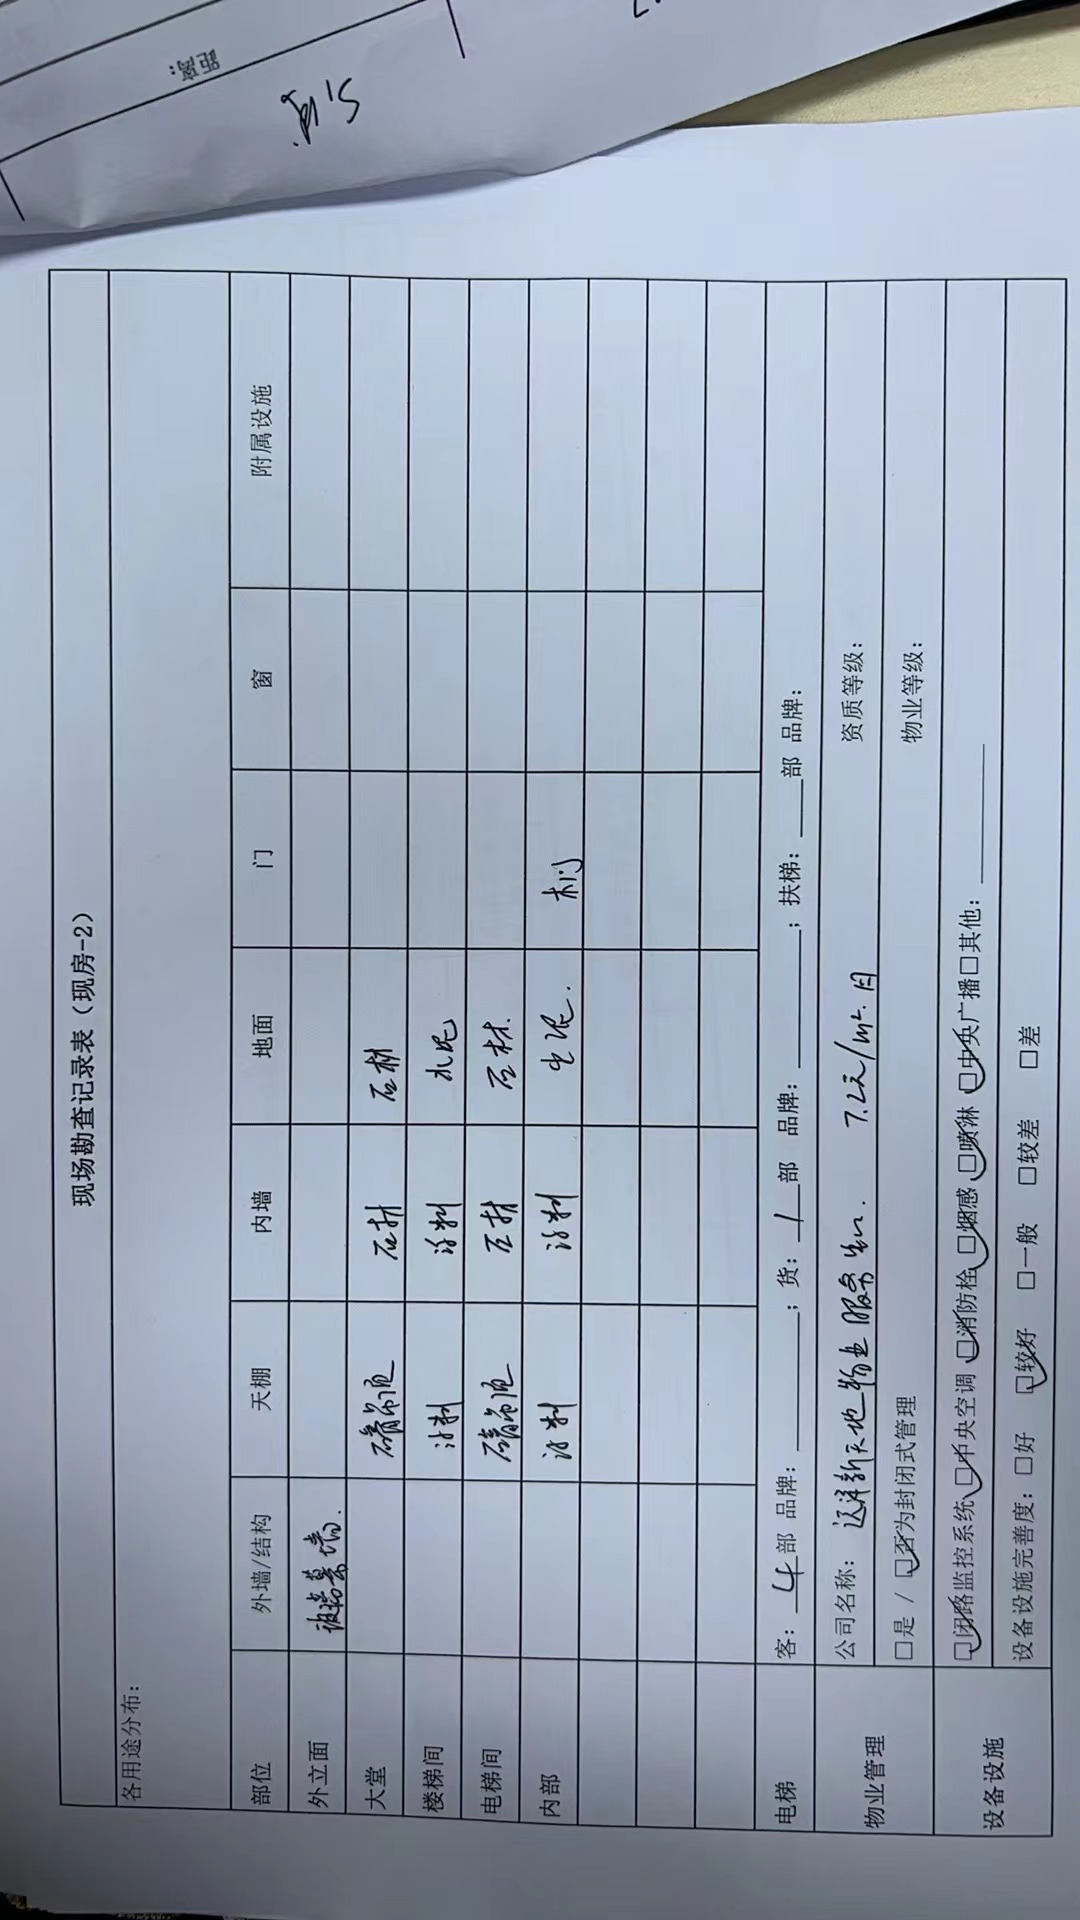 距离:
现场勘查记录表（现房-2）
各用途分布:
部位 外墙/结构 天棚 内墙 地面 门 窗 附属设施
外立面 玻璃幕墙.
大堂 石膏吊顶 石材 石材
楼梯间 涂料 涂料 水泥
电梯间 石膏吊顶 石材 石材.
内部 涂料 涂料 水泥. 木门
电梯 客: 4 部 品牌: ; 货: 1 部 品牌: ; 扶梯: 部 品牌:
物业管理 公司名称: 远洋新天地物业服务 7.2元/m².月 资质等级:
□是 / □否为封闭式管理 物业等级:
设备设施 □闭路监控系统 □中央空调 □消防栓 □烟感 □喷淋 □中央广播 □其他:
设备设施完善度: □好 □较好 □一般 □较差 □差